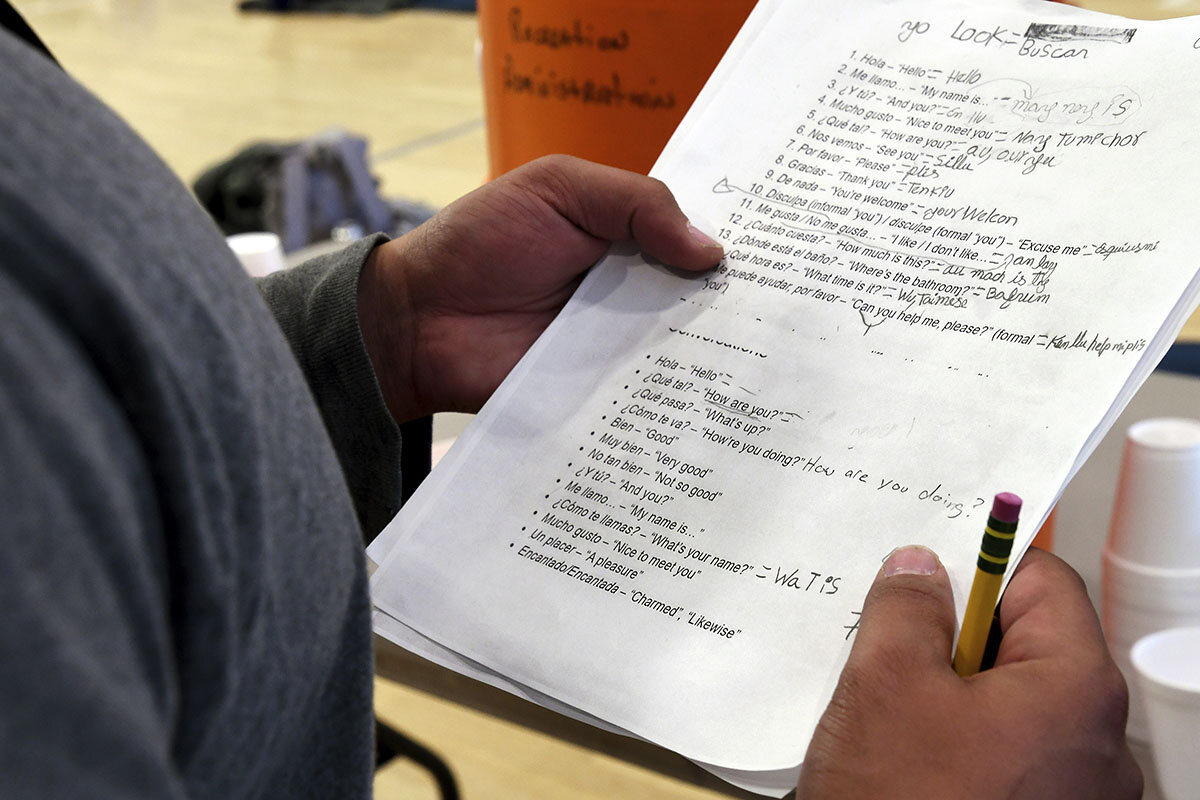 Recreation
Administration
yo Look =
Buscar
1. Hola – "Hello" = Hello
2. Me llamo... – "My name is..." –
3. ¿Y tú? – "And you?" =
4. Mucho gusto – "Nice to meet you" = Nary Tumechor
5. ¿Qué tal? – "How are you?" =
6. Nos vemos – "See you" =
7. Por favor – "Please" – plis
8. Gracias – "Thank you" = Tenkiu
9. De nada – "You're welcome" = your Welcon
10. Disculpa (informal 'you') / disculpe (formal 'you') – "Excuse me" –
11. Me gusta / No me gusta... – "I like / I don't like... =
12. ¿Cuánto cuesta? – "How much is this?" = au mach is the
13. ¿Dónde está el baño? – "Where's the bathroom?" = Bafrum
¿Qué hora es? – "What time is it?" =
Me puede ayudar, por favor – "Can you help me, please?" (formal = Ken llu help mi plis
'you')
Conversations
• Hola – "Hello" =
• ¿Qué tal? – "How are you?" =
• ¿Qué pasa? – "What's up?"
• ¿Cómo te va? – "How're you doing?" How are you doing?
• Bien – "Good"
• Muy bien – "Very good"
• No tan bien – "Not so good"
• ¿Y tú? – "And you?"
• Me llamo... – "My name is..."
• ¿Cómo te llamas? – "What's your name?" = WaTiS
• Mucho gusto – "Nice to meet you"
• Un placer – "A pleasure"
• Encantado/Encantada – "Charmed", "Likewise"